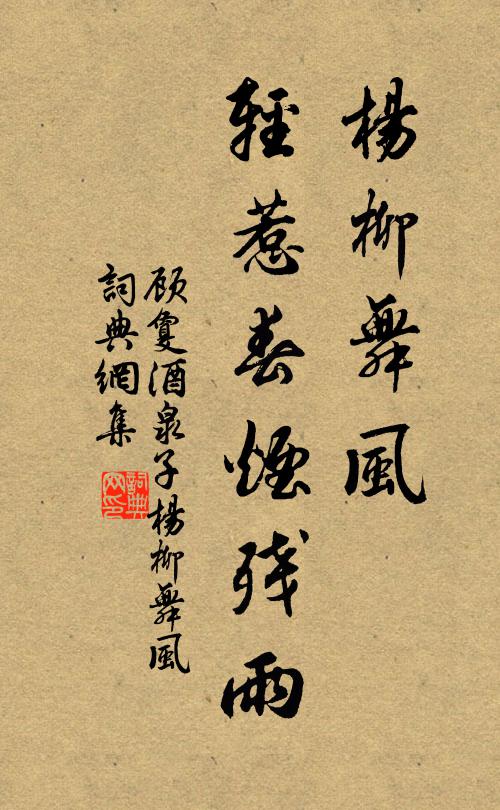 楊柳舞風
輕惹春煙残雨
顾夐酒泉子楊柳舞風
詞典網集
詞典
网印